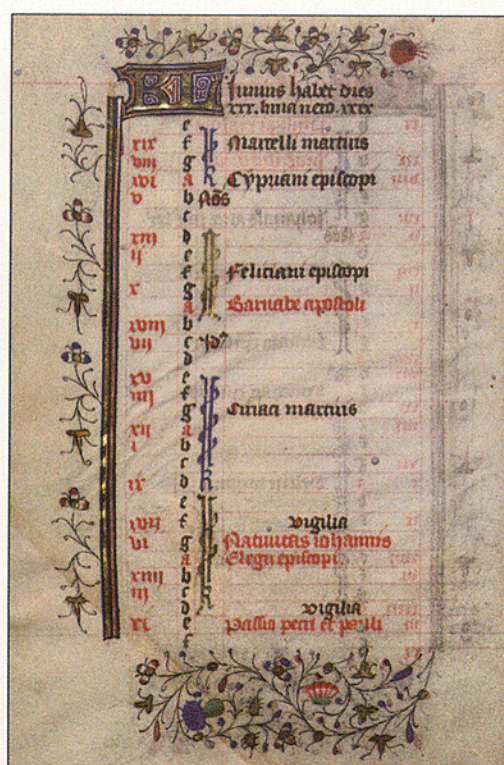 KL Iunius habet dies
xxx. luna vero. xxix
e
xix f Marcelli martiris
viij g
xvi a Cypriani episcopi
v b Nōs
c
xiij d
ij e
f Feliciani episcopi
x g
a Barnabe apostoli
xviij b
vij c
d
xv e
iiij f
g Ciriaci martiris
xij a
i b
c
ix d
e
xvij f vigilia
vi g Nativitas iohannis
a Elegii episcopi
xiiij b
iij c
d vigilia
xi e Passio petri et pauli
f